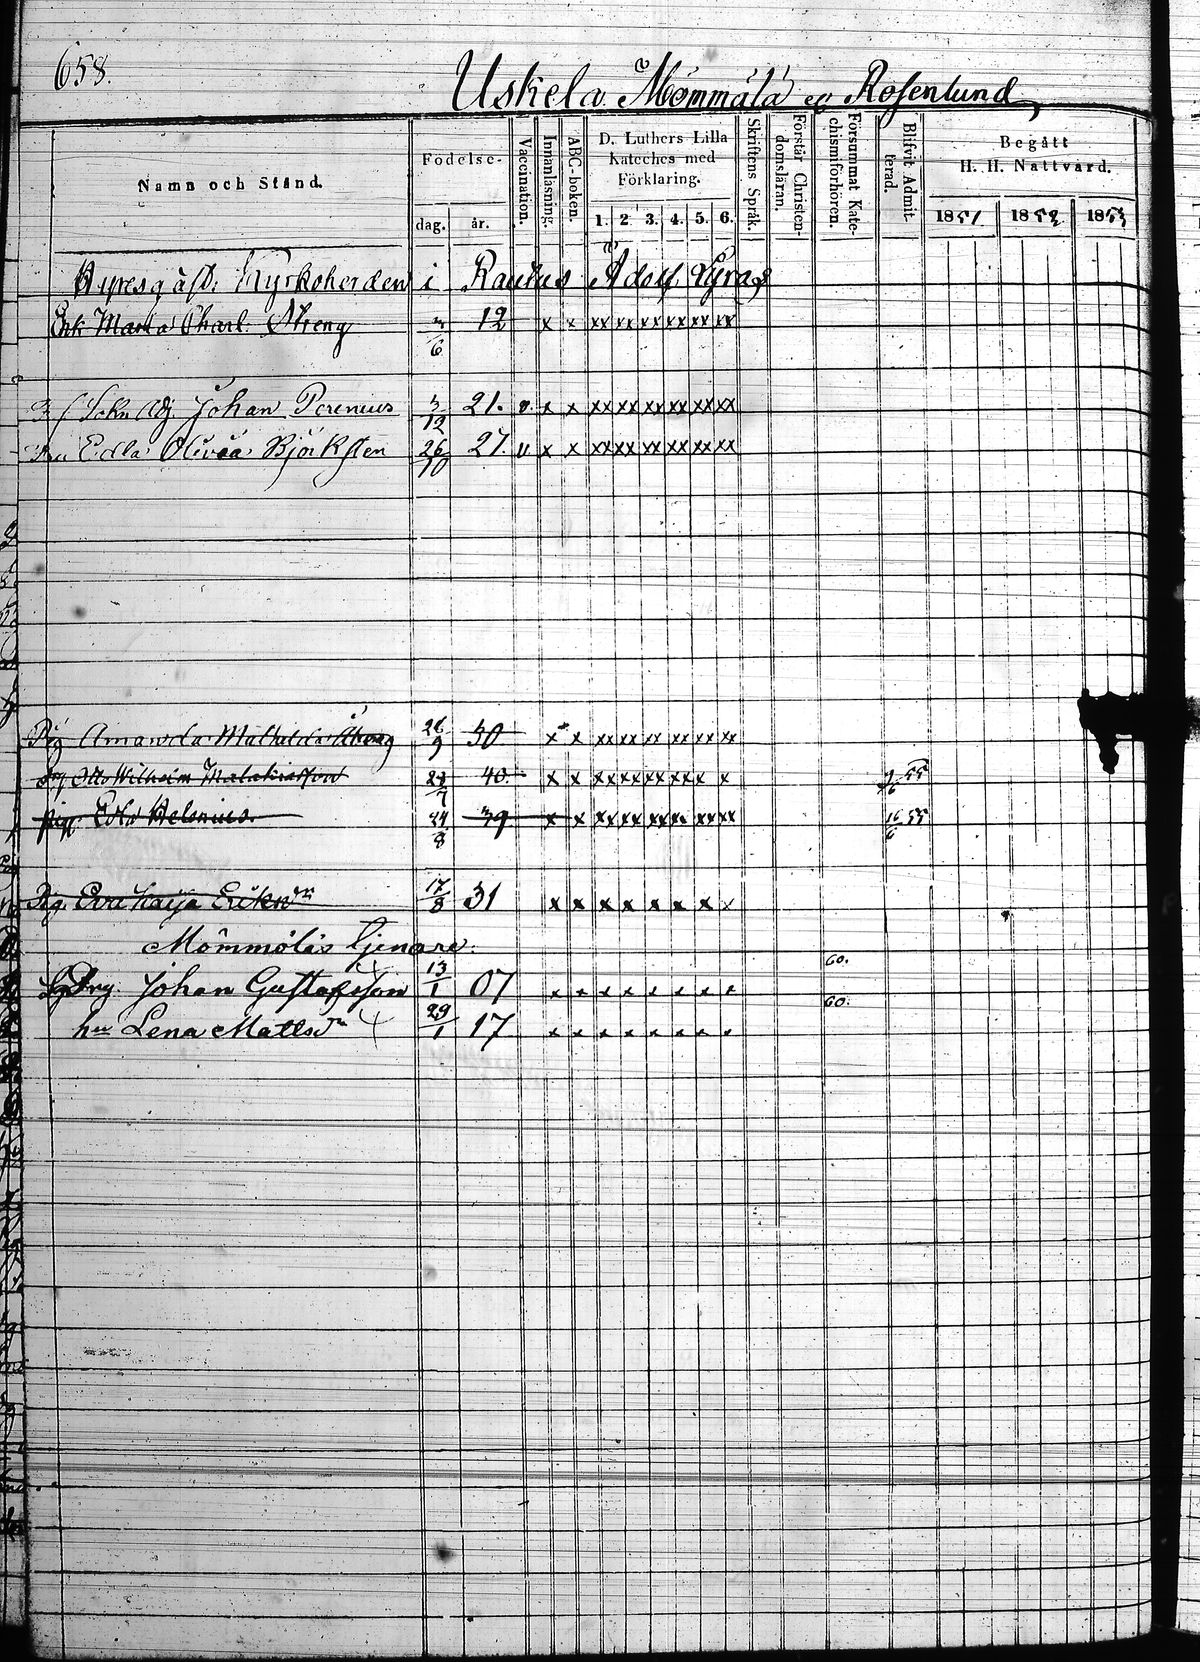 658.
Uskela Mömmälä o Rosenlund
Namn och Stånd.
Födelse-
dag. år.
Vaccination.
Innanläsning.
ABC-boken.
D. Luthers Lilla
Kateches med
Förklaring.
1. 2 3. 4. 5. 6.
Skriftens Språk.
Förstår Christen-
domsläran.
Försummat Kate-
chismiförhören.
Blifvit Admit-
terad.
Begått
H. H. Nattvard.
1851 1852 1853
Hyresgäst: Kyrkoherden i Rautus Adolf Lyra
Enk Maria Charl: Streng 6 12 x x xx xx xx xx xx xx
Johan Perenius 3/12 21. v. x x xx xx xx xx xx xx
Edla Olivia Björksten 26/10 27. v x x xx xx xx xx xx xx
Pig Amanda Mathilda 9 30 x x xx xx xx xx xx xx
Otto Wilhelm 7 40 x x xx xx xx xx x x 55
pig. Helenius. 24/8 39 x x xx xx xx xx xx xx 16/6 55
Pig. Eva Kaija Eriksdr 17/8 31 x x x x x x x x
Mömmöläs tjenare:
Johan Gustafsson 13/1 07 x x x x x x x x 60.
hu Lena Mattsdr 29/1 17 x x x x x x x x 60.